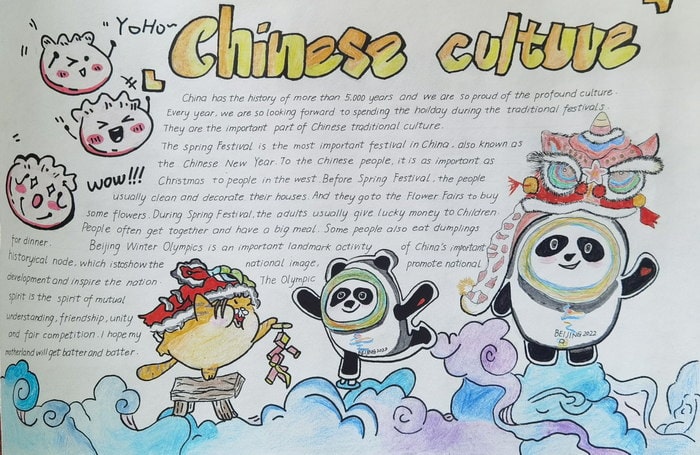 "YoHo~"
Chinese culture
China has the history of more than 5,000 years and we are so proud of the profound culture.
Every year, we are so looking forward to spending the hoilday during the traditional festivals.
They are the important part of Chinese traditional culture.
The spring Festival is the most important festival in China, also known as
the Chinese New Year. To the Chinese people, it is as important as
Christmas to people in the west. Before Spring Festival, the people
wow!!!
usually clean and decorate their houses. And they go to the Flower Fairs to buy
some flowers. During Spring Festival, the adults usually give lucky money to Children
People often get together and have a big meal. Some people also eat dumplings
for dinner.
Beijing Winter Olympics is an important landmark activity of China's important
historycal node, which istoshow the national image, promote national
development and inspire the nation. The Olympic
spirit is the spirit of mutual
understanding, friendship, unity
and fair competition. I hope my
motherland will get batter and batter.
BEIJING 2022
BEIJING 2022